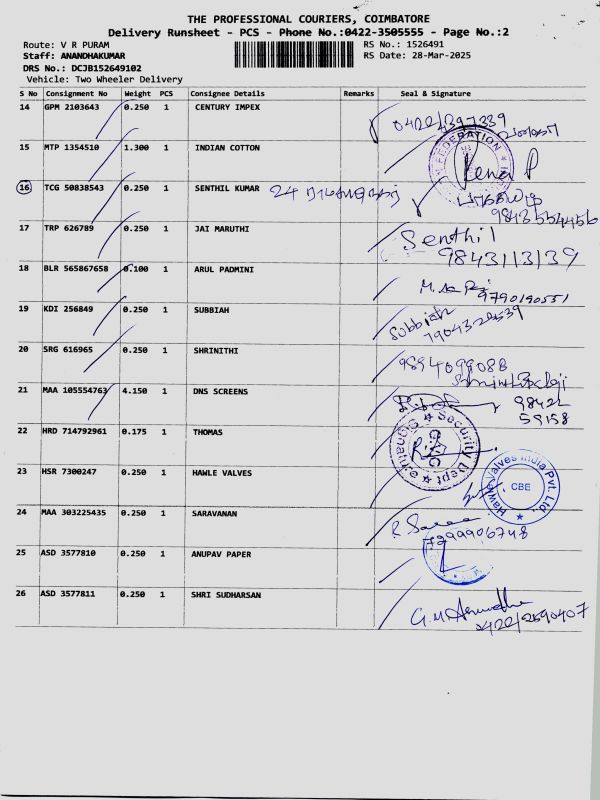 THE PROFESSIONAL COURIERS, COIMBATORE
Delivery Runsheet - PCS - Phone No.:0422-3505555 - Page No.:2
Route: V R PURAM
RS No.: 1526491
Staff: ANANDHAKUMAR
RS Date: 28-Mar-2025
DRS No.: DCJB152649102
Vehicle: Two Wheeler Delivery
S No Consignment No Weight PCS Consignee Details Remarks Seal & Signature
14 GPM 2103643 0.250 1 CENTURY IMPEX
0422/4397339
15 MTP 1354510 1.300 1 INDIAN COTTON
FEDERATION
16 TCG 50838543 0.250 1 SENTHIL KUMAR 24
9843554456
17 TRP 626789 0.250 1 JAI MARUTHI Senthil
9843113139
18 BLR 565867658 0.100 1 ARUL PADMINI
9790190551
19 KDI 256849 0.250 1 SUBBIAH Subbiah
20 SRG 616965 0.250 1 SHRINITHI 9894099088
21 MAA 105554763 4.150 1 DNS SCREENS
98422
59158
22 HRD 714792961 0.175 1 THOMAS
Security Dept ★ Signature ★
23 HSR 7300247 0.250 1 HAWLE VALVES
Hawle Valves India Pvt. Ltd., ★
CBE
24 MAA 303225435 0.250 1 SARAVANAN
25 ASD 3577810 0.250 1 ANUPAV PAPER
26 ASD 3577811 0.250 1 SHRI SUDHARSAN
0422/2590407